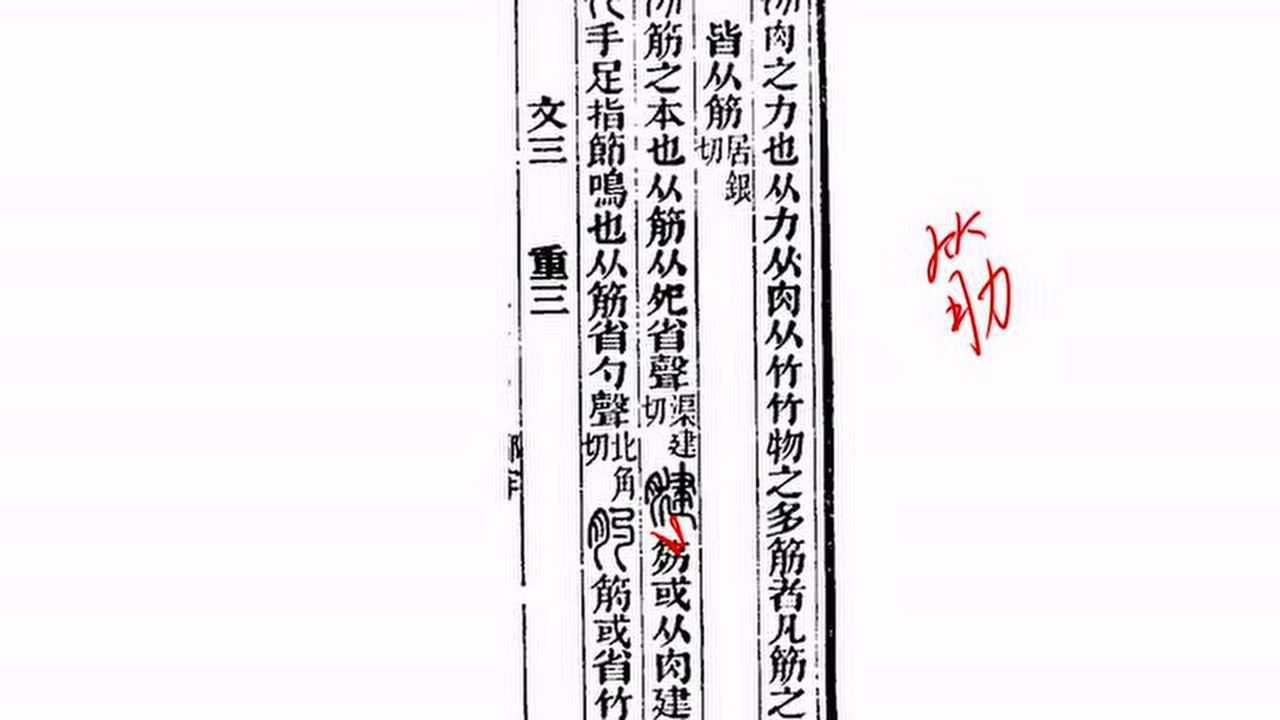 肉之力也从力从肉从竹竹物之多筋者凡筋之
皆从筋居銀切
筋之本也从筋从夗省聲渠建切𦛢筋或从肉建
手足指節鳴也从筋省勺聲北角切肑筋或省竹
文三 重三